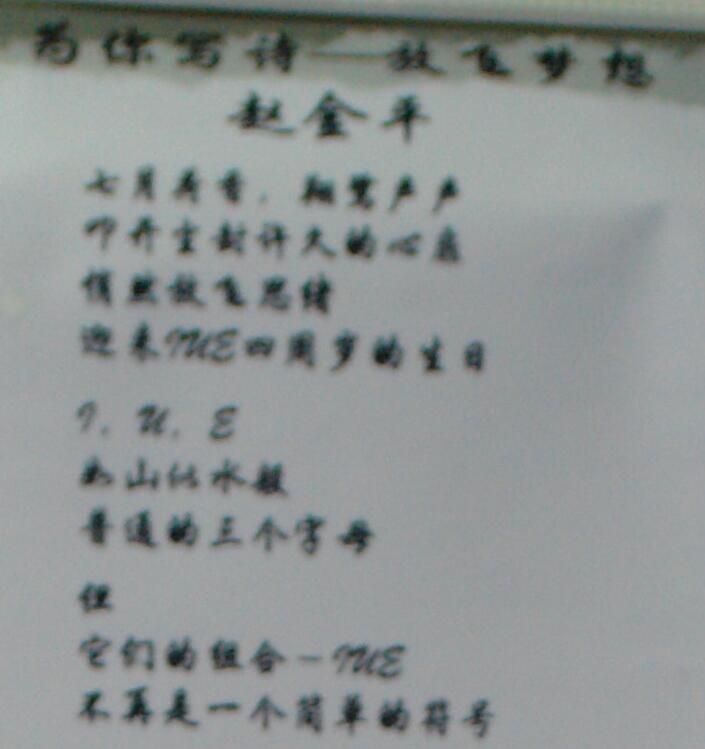 为你写诗——放飞梦想
赵金平
七月寿香，翔鹭声声
叩开尘封许久的心扉
悄然放飞思绪
迎来IUE四周岁的生日
I，U，E
如山似水般
普通的三个字母
但
它们的组合－IUE
不再是一个简单的符号